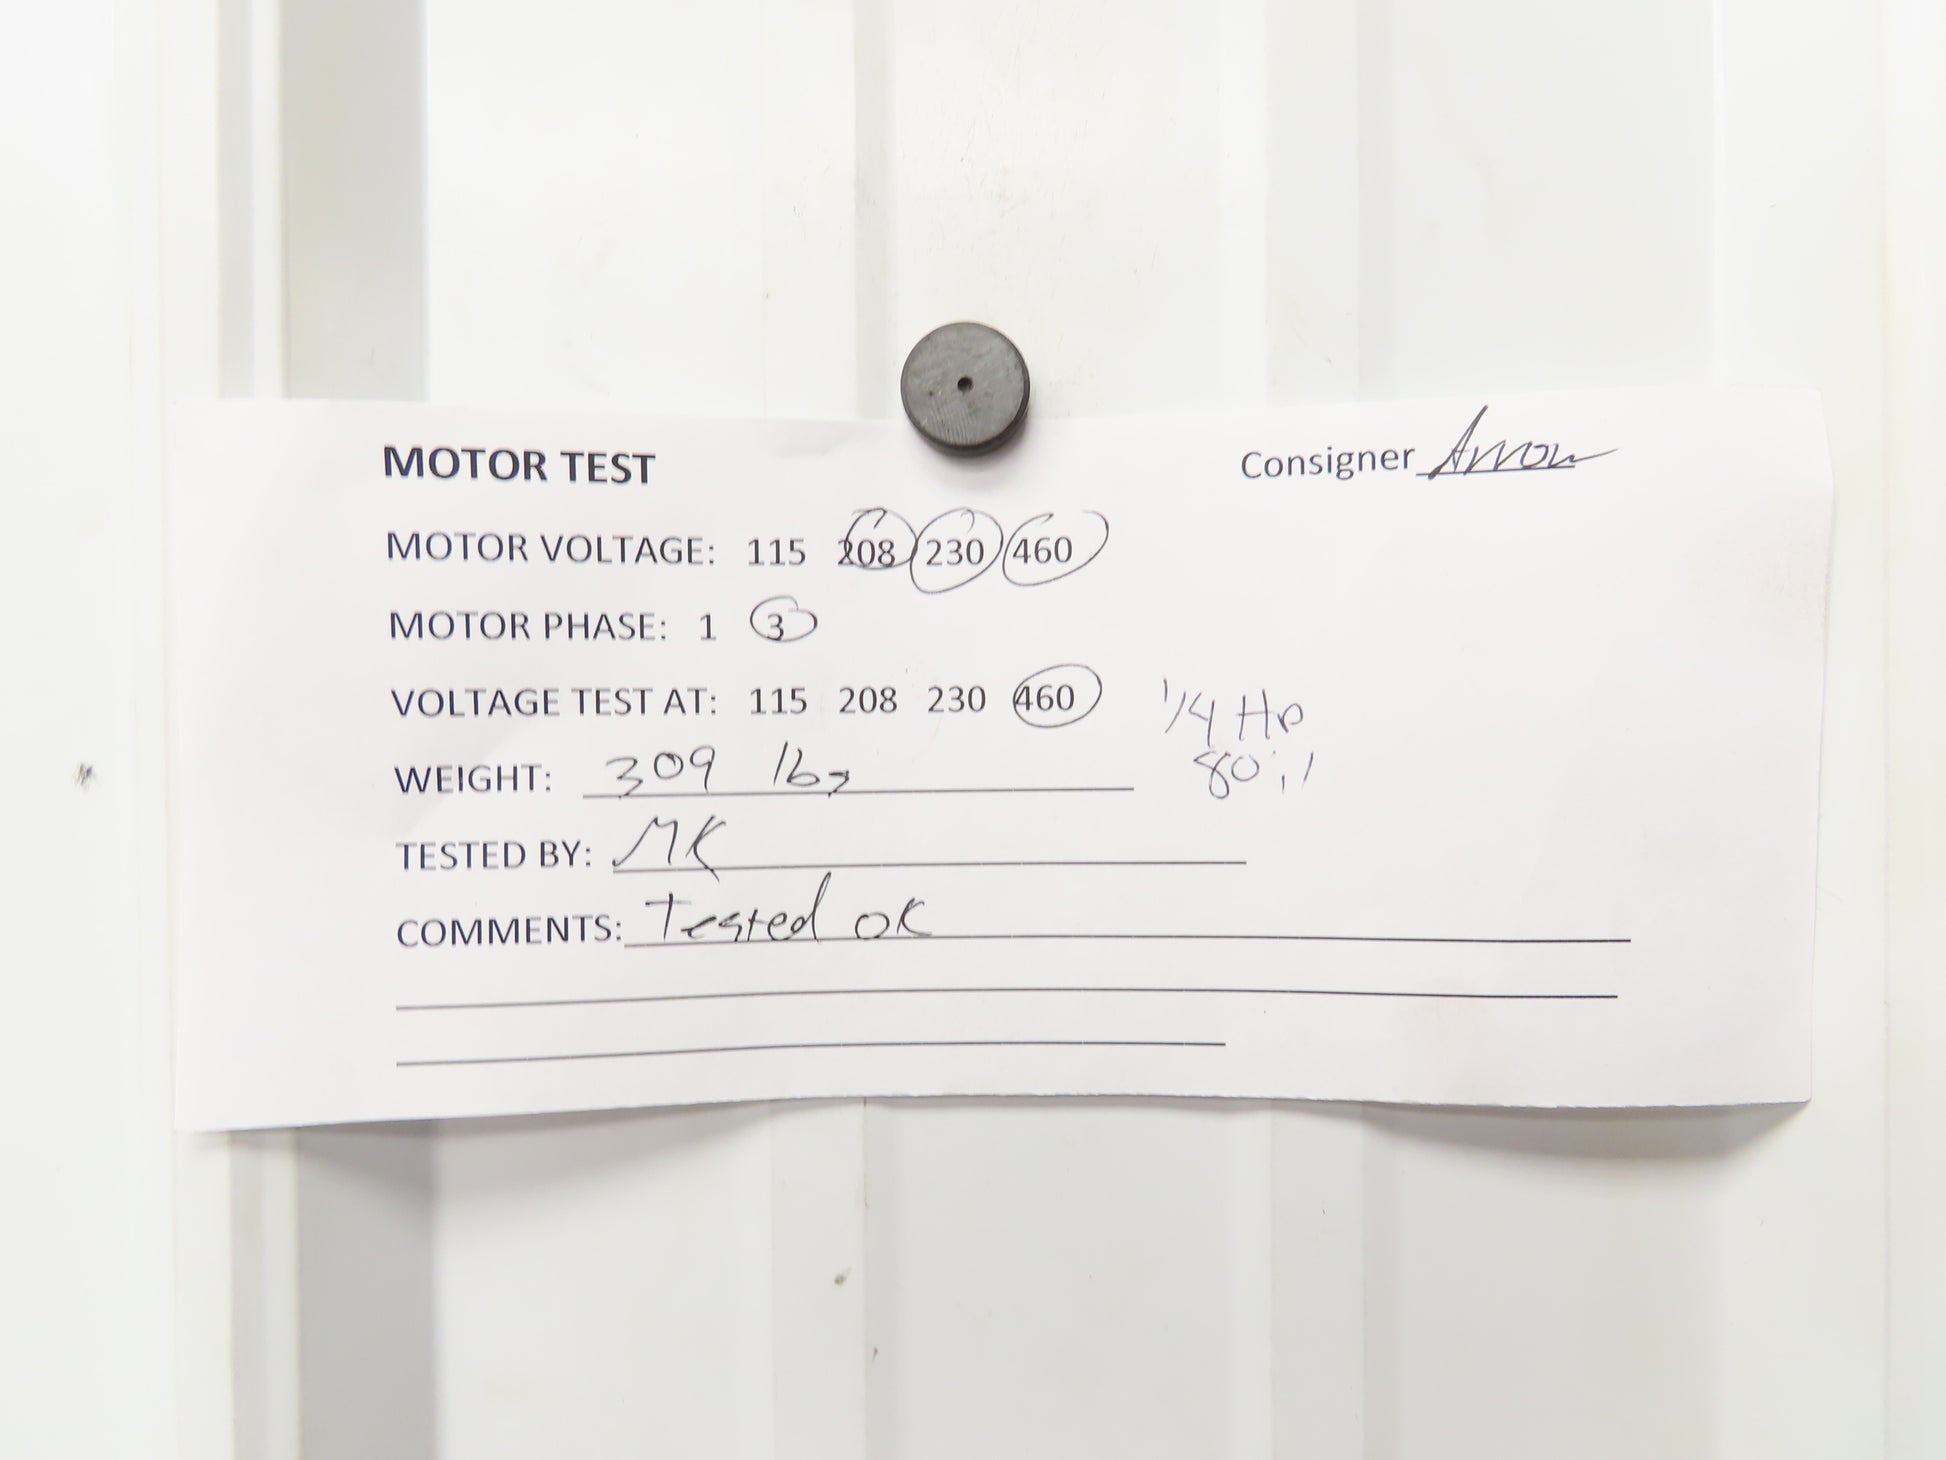 MOTOR TEST Consigner Arrow
MOTOR VOLTAGE: 115 208 230 460
MOTOR PHASE: 1 3
VOLTAGE TEST AT: 115 208 230 460 1/4 Hp
WEIGHT: 309 lbs 80:1
TESTED BY: MK
COMMENTS: Tested OK